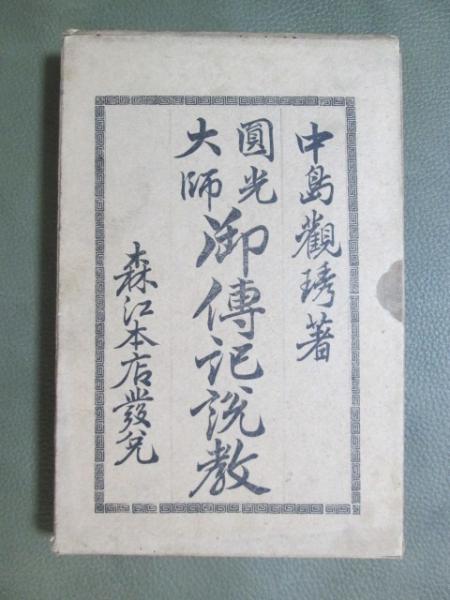 中島觀琇著
圓光
大師
御傳記説教
森江本店發兌